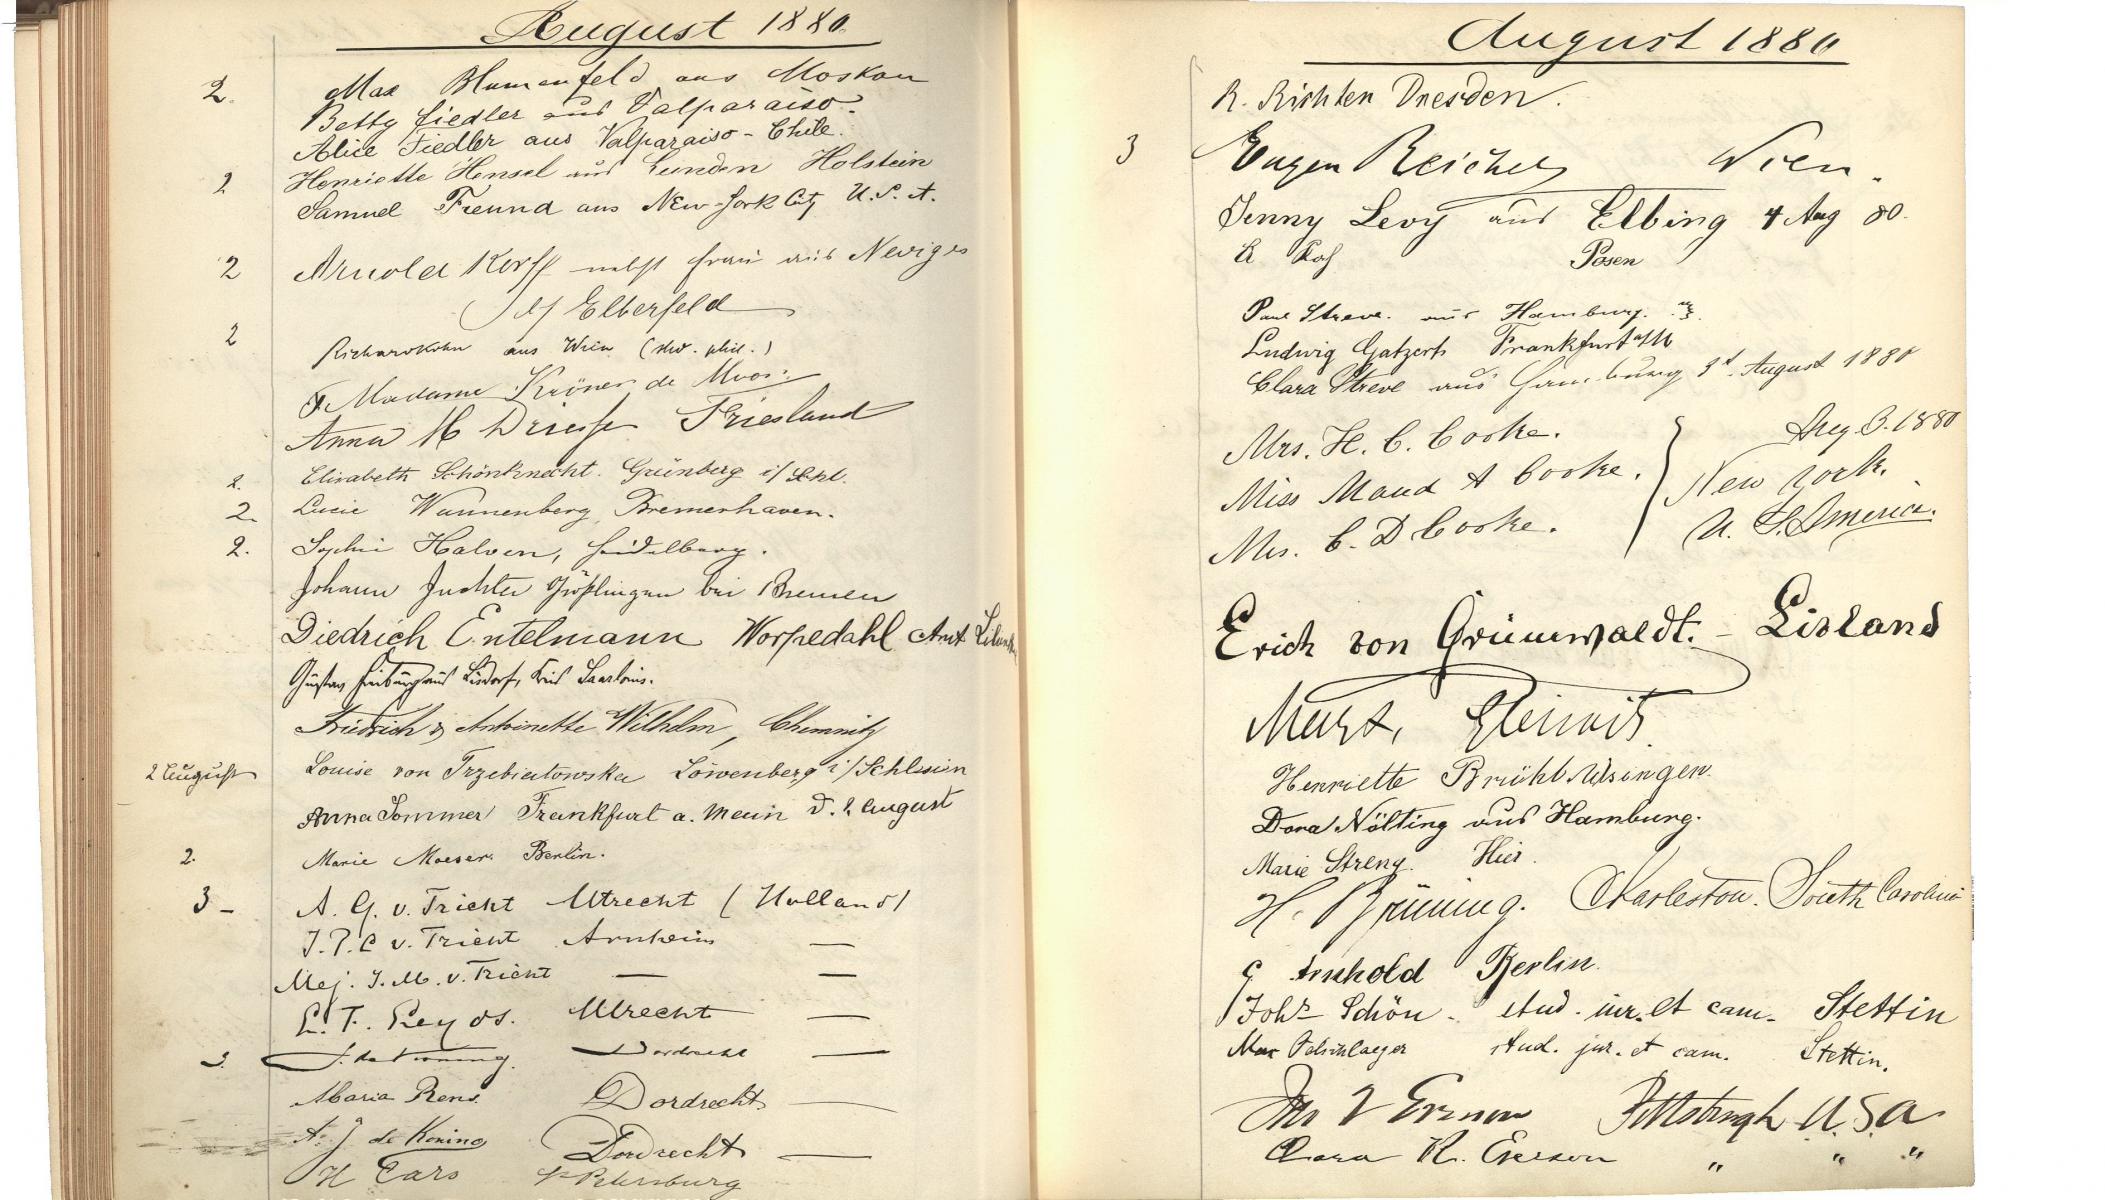 August 1880
2. Max Blumenfeld aus Moskau
Betty Fiedler aus Valparaiso.
Alice Fiedler aus Valparaiso - Chile.
2 Henriette Hensel aus Lunden Holstein
Samuel Freund aus New-York City U.S.A.
2 Arnold Korff nebst Frau aus Neviges
Elberfeld
2 Richard Kohn aus Wien (stud. phil.)
Madame Kröner de Moos.
Anna M Driesse Friesland
2. Elisabeth Schönknecht. Grünberg i/ Schl.
2. Lucie Wannenberg, Bremerhaven.
2. Sophie Halven, Heidelberg.
Johann Juchter bei Bremen
Diedrich Entelmann Worpedahl Amt
Gustav Freiburg aus Lisdorf, Kreis Saarlouis.
Friedrich & Antoinette Wilhelm, Chemnitz
2 August Louise von Trzebiatowska Löwenberg i/ Schlesien
Anna Sommer Frankfurt a. Main d. 2 August
2. Marie Moeser. Berlin.
3 - A. G. v. Tricht Utrecht (Holland)
J. P. C v. Tricht Arnheim —
Mej. J. M. v. Tricht — —
Utrecht —
3. Dordrecht —
Maria Rens. Dordrecht —
A. J. de Koning Dordrecht —
H Cars St Petersburg
August 1880
R. Richter Dresden.
3 Eugen Reichel Wien.
Jenny Levy aus Elbing 4 Aug 80.
Posen
Paul Streve. aus Hamburg.
Ludwig Gatzert Frankfurt a/M
Clara Streve aus Hamburg 3t. August 1880
Mrs. H. C. Cooke.
Miss Maud A Cooke.
Mrs. C. D Cooke.
Aug. 3. 1880
New York.
U. S. America.
Erich von Grünwaldt. - Livland
Henriette Brühl Usingen.
Dora Nölting aus Hamburg.
Marie Streng. Hier.
H. Brüning. Charleston. South Carolina
G Arnhold Berlin.
Johs Schön - stud. iur. et cam. Stettin
Max Oelschlaeger stud. jur. et cam. Stettin.
Pittsburgh U.S.A
Clara K. Everson " " "